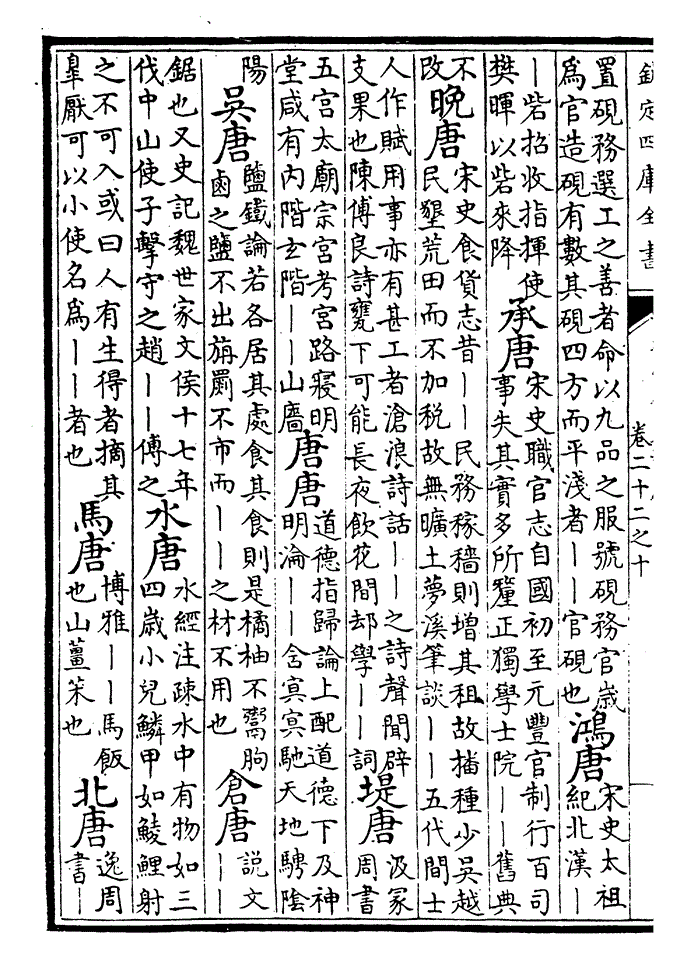 欽定四庫全書
卷二十二之十
置硯務選工之善者命以九品之服號硯務官歲
爲官造硯有數其硯四方而平淺者――官硯也
鴻唐
宋史太祖
紀北漢―
―砦招收指揮使
樊暉以砦來降
承唐
宋史職官志自國初至元豐官制行百司
事失其實多所釐正獨學士院――舊典
不
攺
晚唐
宋史食貨志昔――民務稼穡則增其租故播種少吳越
民墾荒田而不加税故無曠土夢溪筆談――五代間士
人作賦用事亦有甚工者滄浪詩話――之詩聲聞辟
支果也陳傅良詩甕下可能長夜飲花間却學――詞
堤唐
汲冢
周書
五宫太廟宗宫考宫路寢明
堂咸有内階玄階――山廧
唐唐
道德指歸論上配道德下及神
明淪――含㝠㝠馳天地騁陰
陽
吳唐
鹽鐵論若各居其處食其食則是橘柚不鬻朐
鹵之鹽不出旃罽不市而――之材不用也
倉唐
説文
――
鋸也又史記魏世家文侯十七年
伐中山使子擊守之趙――傅之
水唐
水經注疎水中有物如三
四歲小兒鱗甲如鯪鯉射
之不可入或曰人有生得者摘其
臯厭可以小使名爲――者也
馬唐
博雅――馬飯
也山薑笨也
北唐
逸周
書―